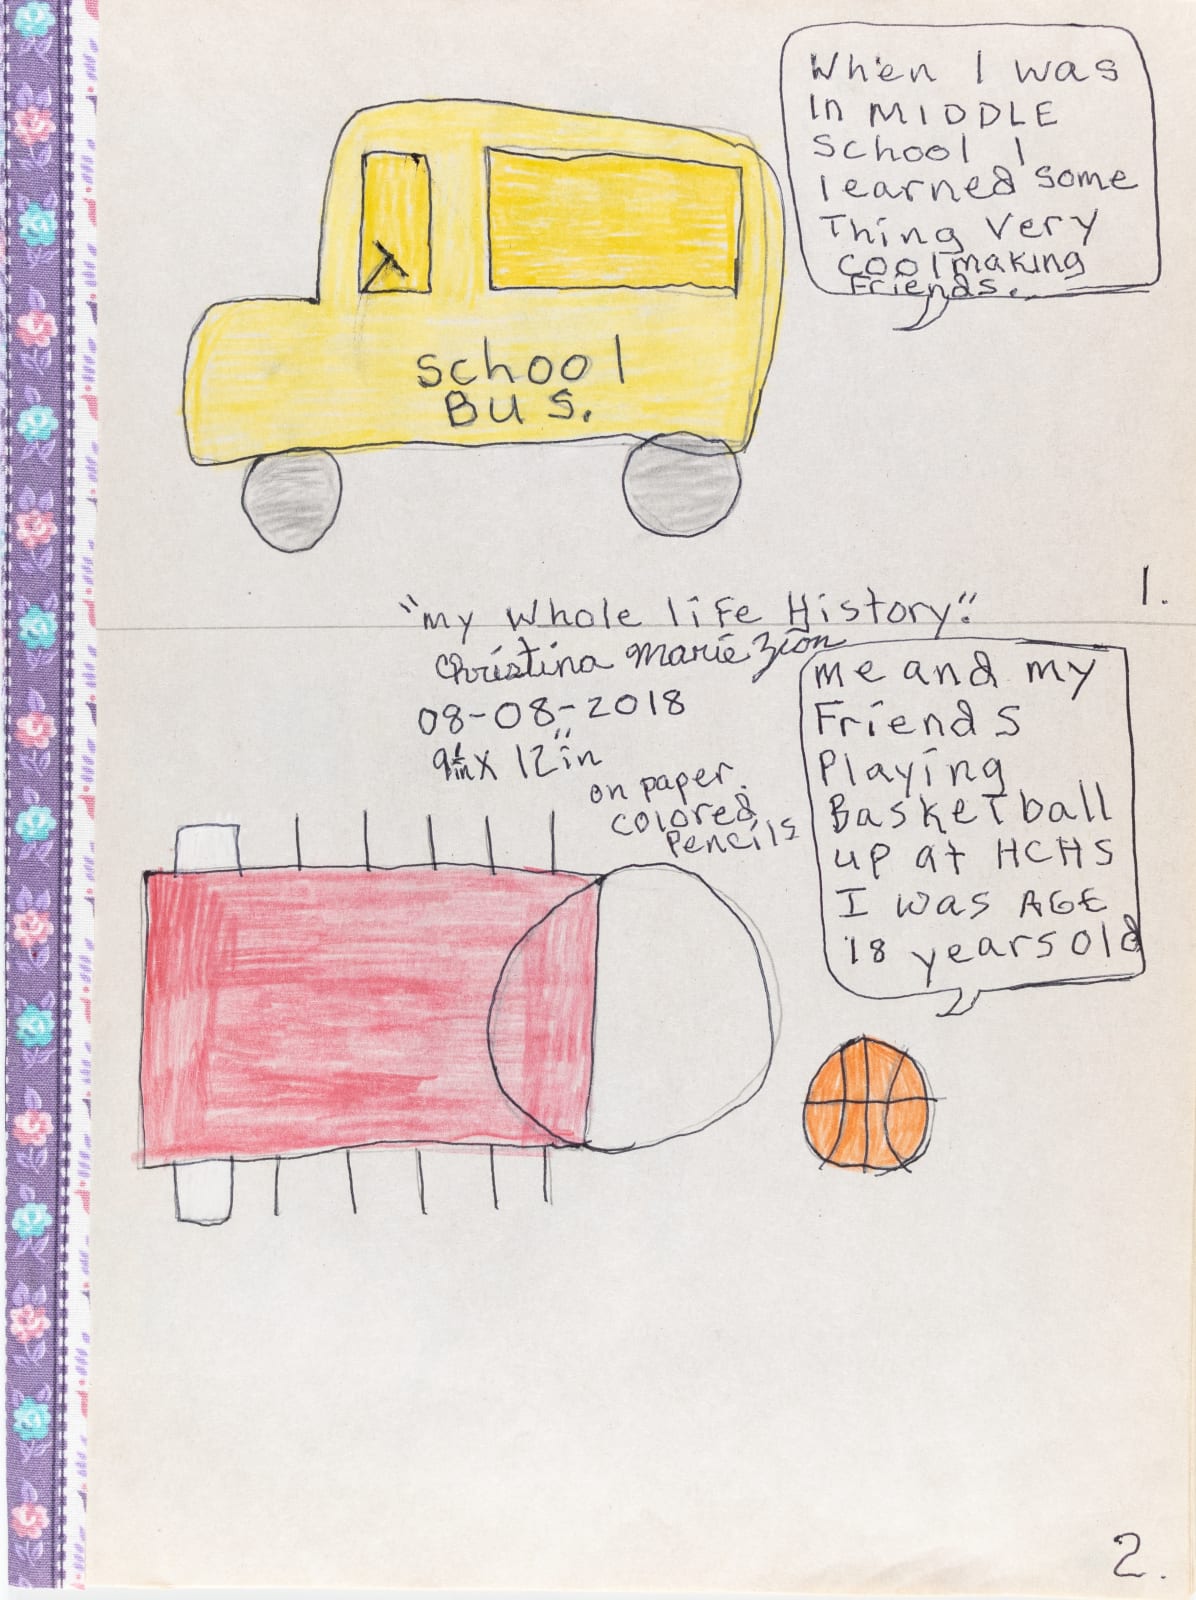 When I was
In MIDDLE
School I
learned some
Thing Very
cool making
Friends.
school
BUS.
1.
"my Whole life History."
Christina Marie Zion
08-08-2018
x 12"in
on paper.
colored
Pencils
me and my
Friends
Playing
BaskeTball
up at HCHS
I was AGE
18 years old
2.